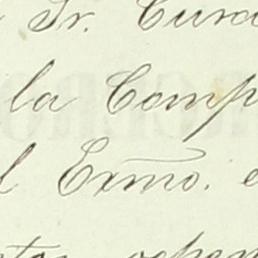 Sr. Cura
la Comp
l Exmo. e